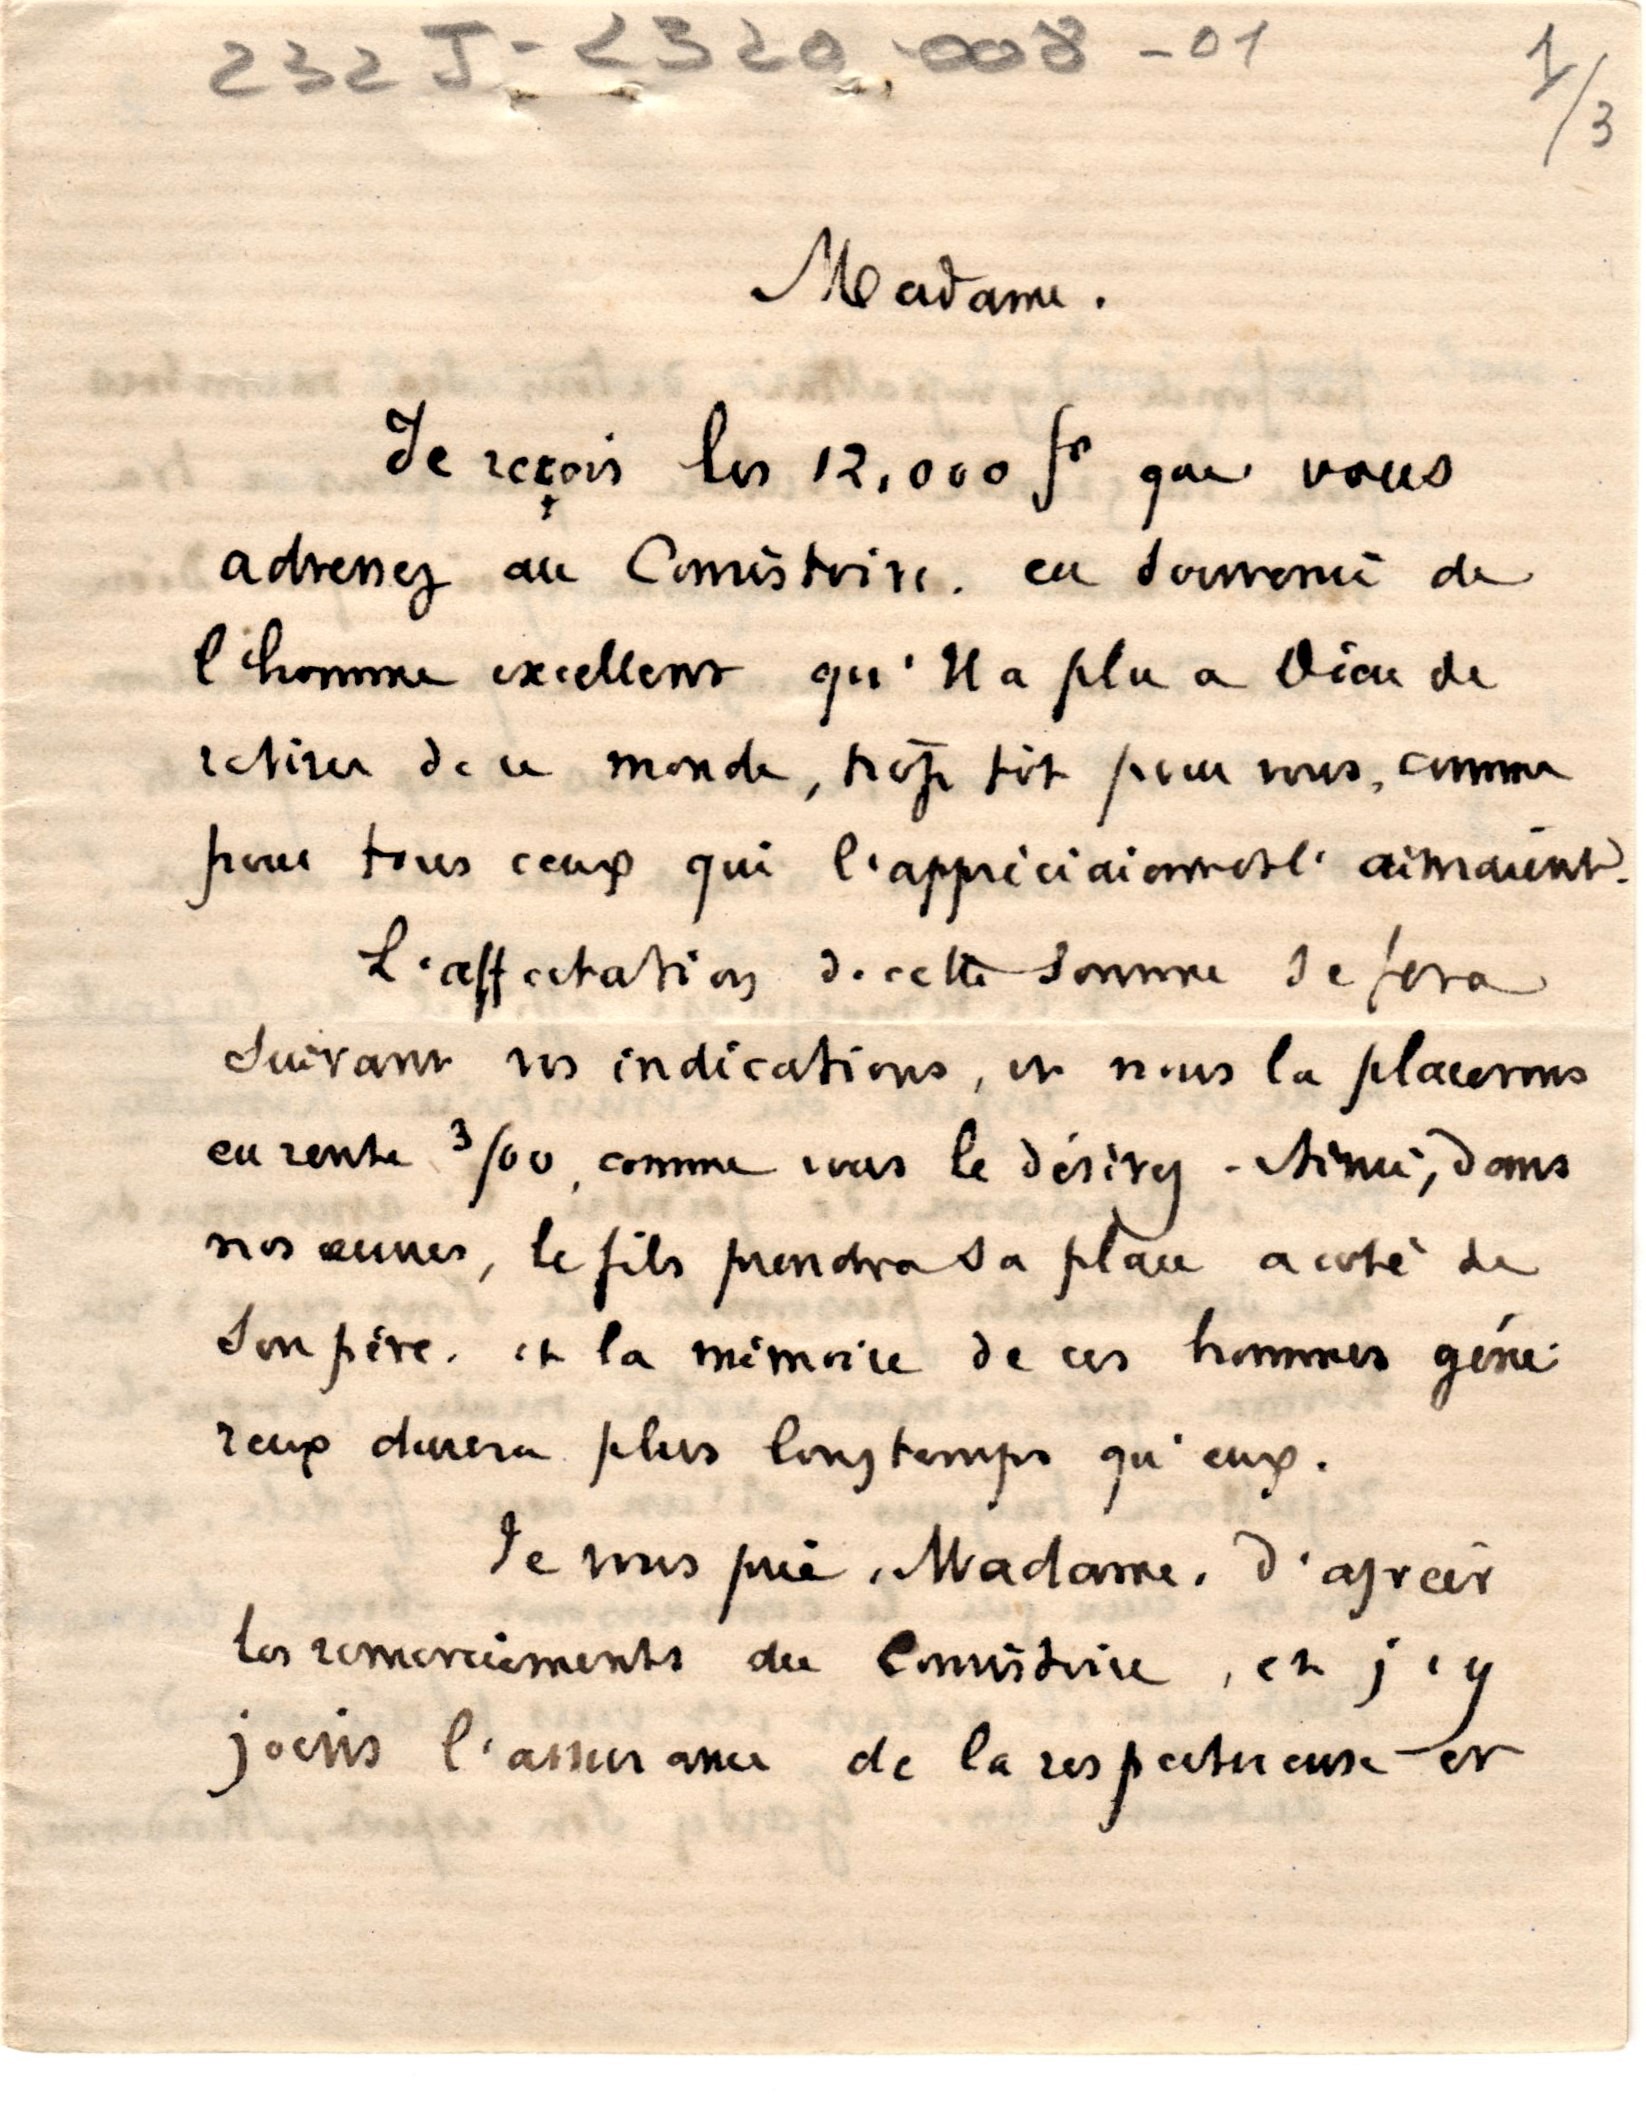 232 J - 2320 008 - 01
1/3
Madame.
Je reçois les 12,000 fr que vous
adressez au Consistoire. en souvenir de
l'homme excellent qu'il a plu a Dieu de
retirer de ce monde, trop tôt pour vous, comme
pour tous ceux qui l'appréciaient et l'aimaient.
L'affectation de cette somme se fera
suivant vos indications, et nous la placerons
en rente 3/00, comme vous le désirez. Ainsi, dans
nos œuvres, le fils prendra sa place a coté de
son père. et la mémoire de ces hommes géné
reux durera plus longtemps qu'eux.
Je vous prie, Madame. d'agréer
les remerciements du Consistoire, et j'y
joins l'assurance de la respectueuse et